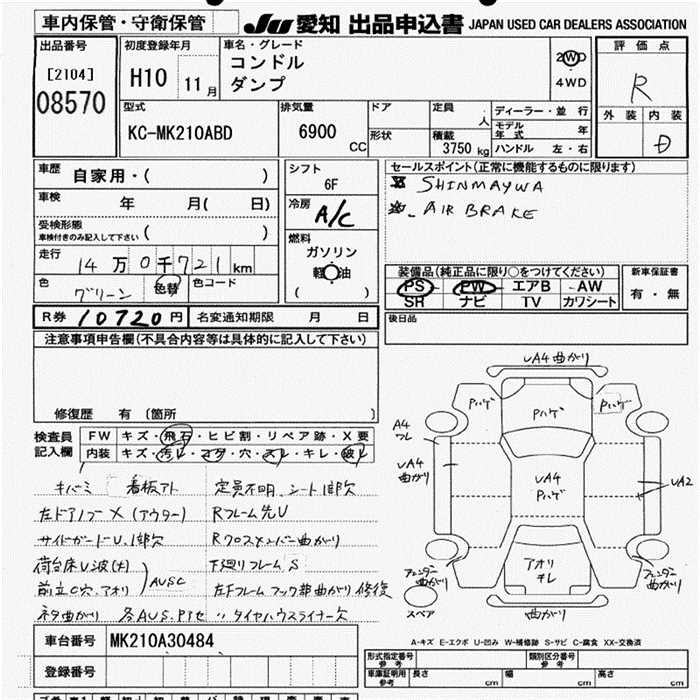 車内保管・守衛保管
JU 愛知 出品申込書 JAPAN USED CAR DEALERS ASSOCIATION
出品番号
[2104]
08570
初度登録年月
H10 11月
車名・グレード
コンドル
ダンプ
2WD
4WD
評価点
R
外装 内装
D
型式
KC-MK210ABD
排気量
6900 CC
ドア
形状
定員 人
積載 3750 kg
ディーラー・並行
モデル年式 年
ハンドル 左・右
車歴 自家用・( )
車検 年 月( 日)
受検形態
車検付きのみ記入して下さい ( )
走行 14万0千721km
色 グリーン 色替 色コード
シフト
6F
冷房
A/C
燃料
ガソリン
軽油
( )
セールスポイント(正常に機能するものに限ります)
SHINMAYWA
AIR BRAKE
装備品(純正品に限り○をつけてください)
PS PW エアB AW
SR ナビ TV カワシート
新車保証書
有・無
R券 10720円 名変通知期限 月 日
後日品
注意事項申告欄(不具合内容等は具体的に記入して下さい)
修復歴 有 〔箇所 〕
検査員記入欄
FW キズ・飛石・ヒビ割・リペア跡・X要
内装 キズ・汚レ・コゲ・穴・スレ・キレ・破レ
キバミ 看板アト 定員不明、シート1部欠
左ドアノブ X (アウター) Rフレーム先U
サイドガードU、1部欠 Rクロスメンバー曲がり
荷台床U波(大) 下廻りフレームS
前立C穴、アオリ AUSC 左Fフレームフック部曲がり修復
ネタ曲がり 各AUS、Pイセ 〃タイヤハウスライナー欠
UA4曲がり
Pハゲ
Pハゲ
Pハゲ
A4
フレ
UA4
曲がり
UA4
Pハゲ
UA2
アオリ
キレ
フェンダー
曲がり
フェンダー
曲がり
スペア
曲がり
車台番号 MK210A30484
登録番号
A-キズ E-エクボ U-凹み W-補修跡 S-サビ C-腐食 XX-交換済
形式指定番号
参考
類別区分番号
参考
車庫証明用
参考
長さ cm 幅 cm 高さ cm